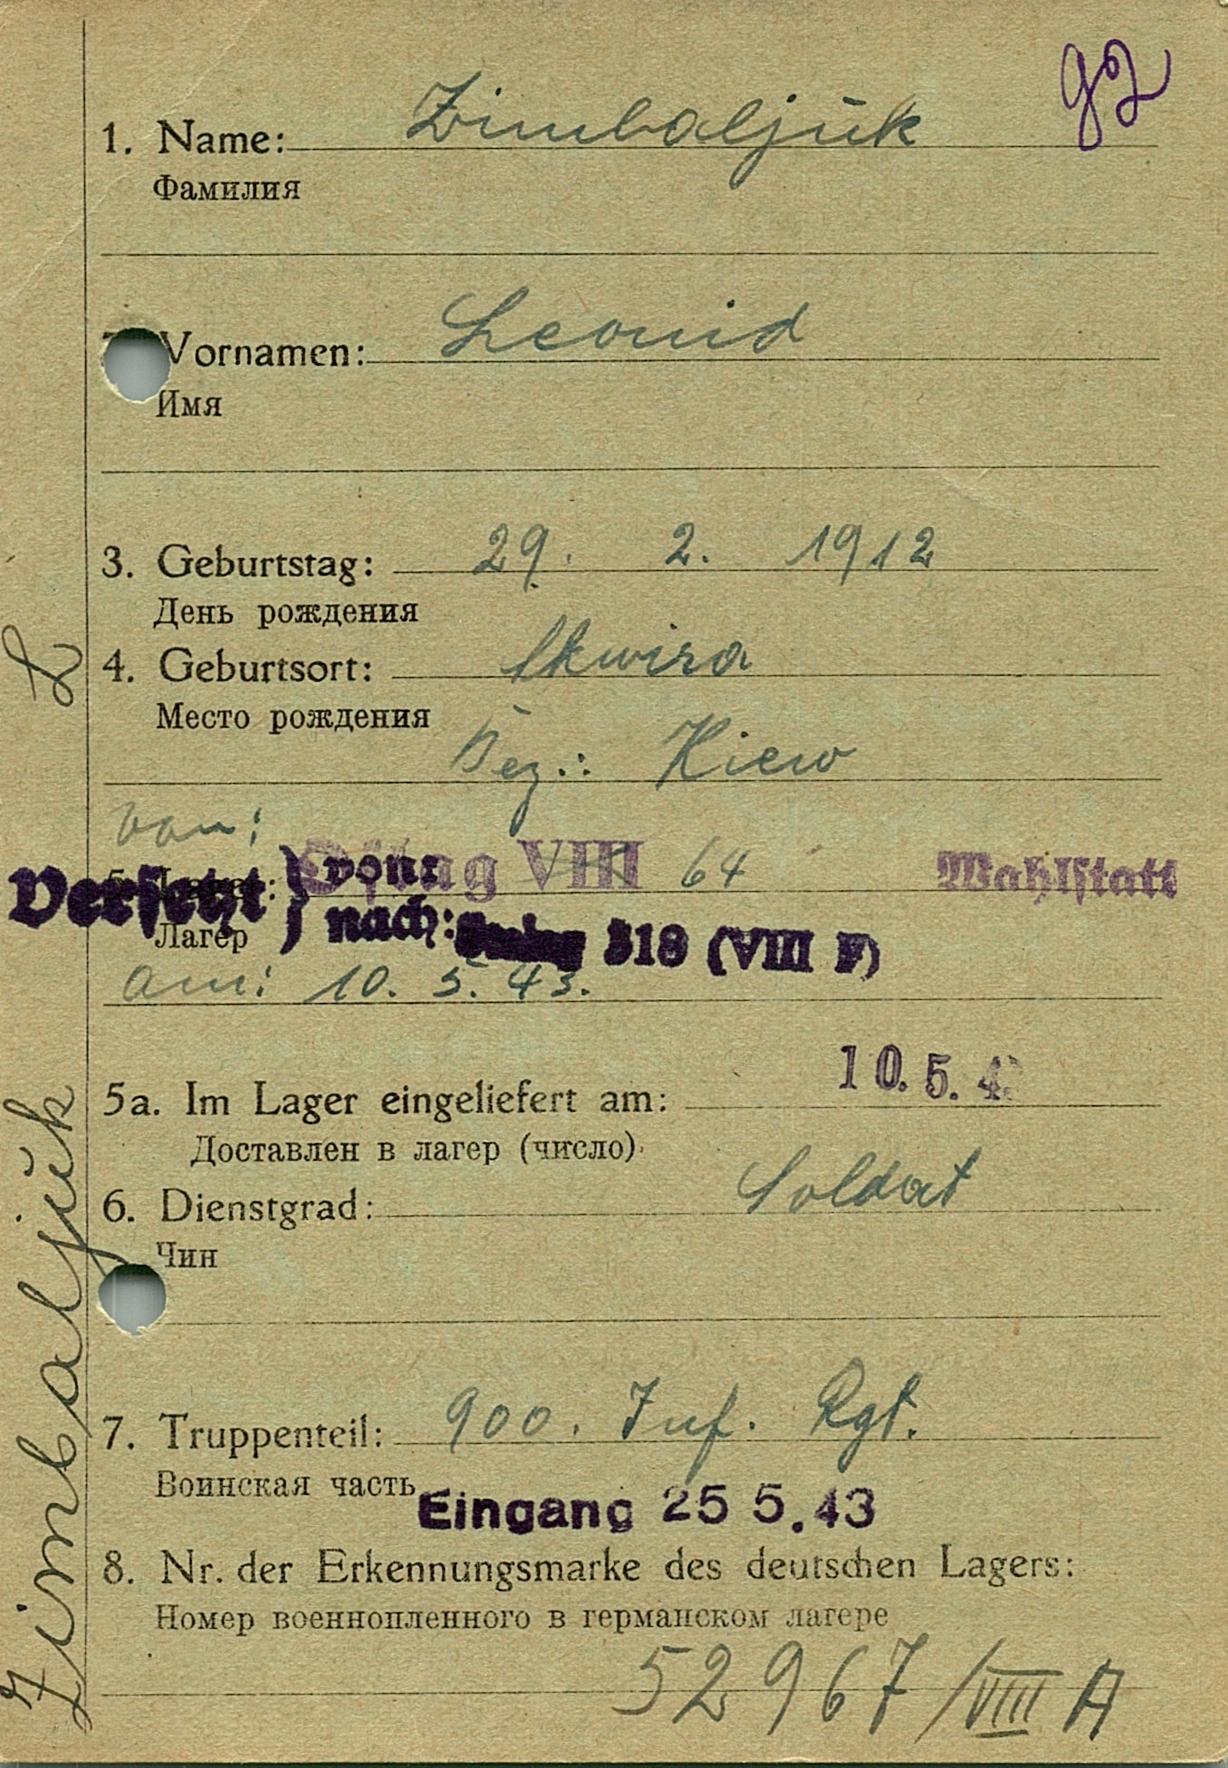 1. Name: Zimbaljuk
Фамилия
Vornamen: Leonid
Имя
3. Geburtstag: 29. 2. 1912
День рождения
4. Geburtsort: Skwira
Место рождения
Bez.: Kiew
von:
Oflag VIII 64 Wahlstatt
Versetzt } von:
nach: 318 (VIII F)
Лагер
am: 10. 5. 43.
10. 5. 4
5a. Im Lager eingeliefert am:
Доставлен в лагер (число)
6. Dienstgrad: Soldat
Чин
7. Truppenteil: 900. Inf. Rgt.
Воинская часть
Eingang 25 5. 43
8. Nr. der Erkennungsmarke des deutschen Lagers:
Номер военнопленного в германском лагере
52967/VIII A
Zimbaljuk L